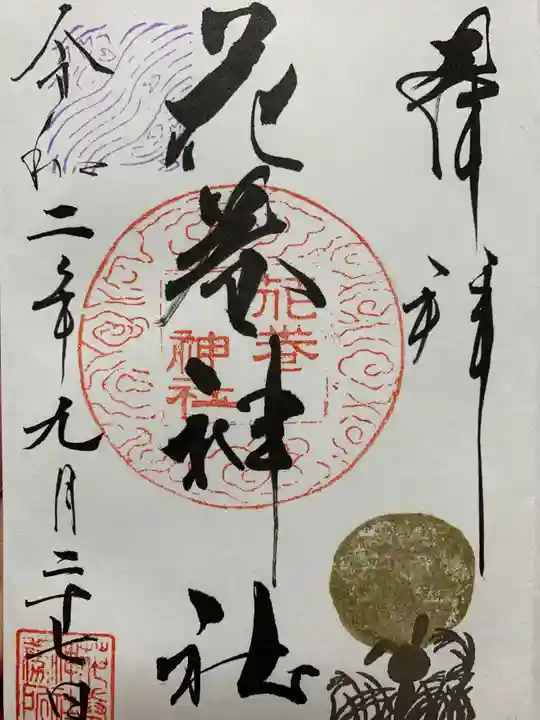 奉拝
花巻神社
花巻
神社
令和二年九月二十七日